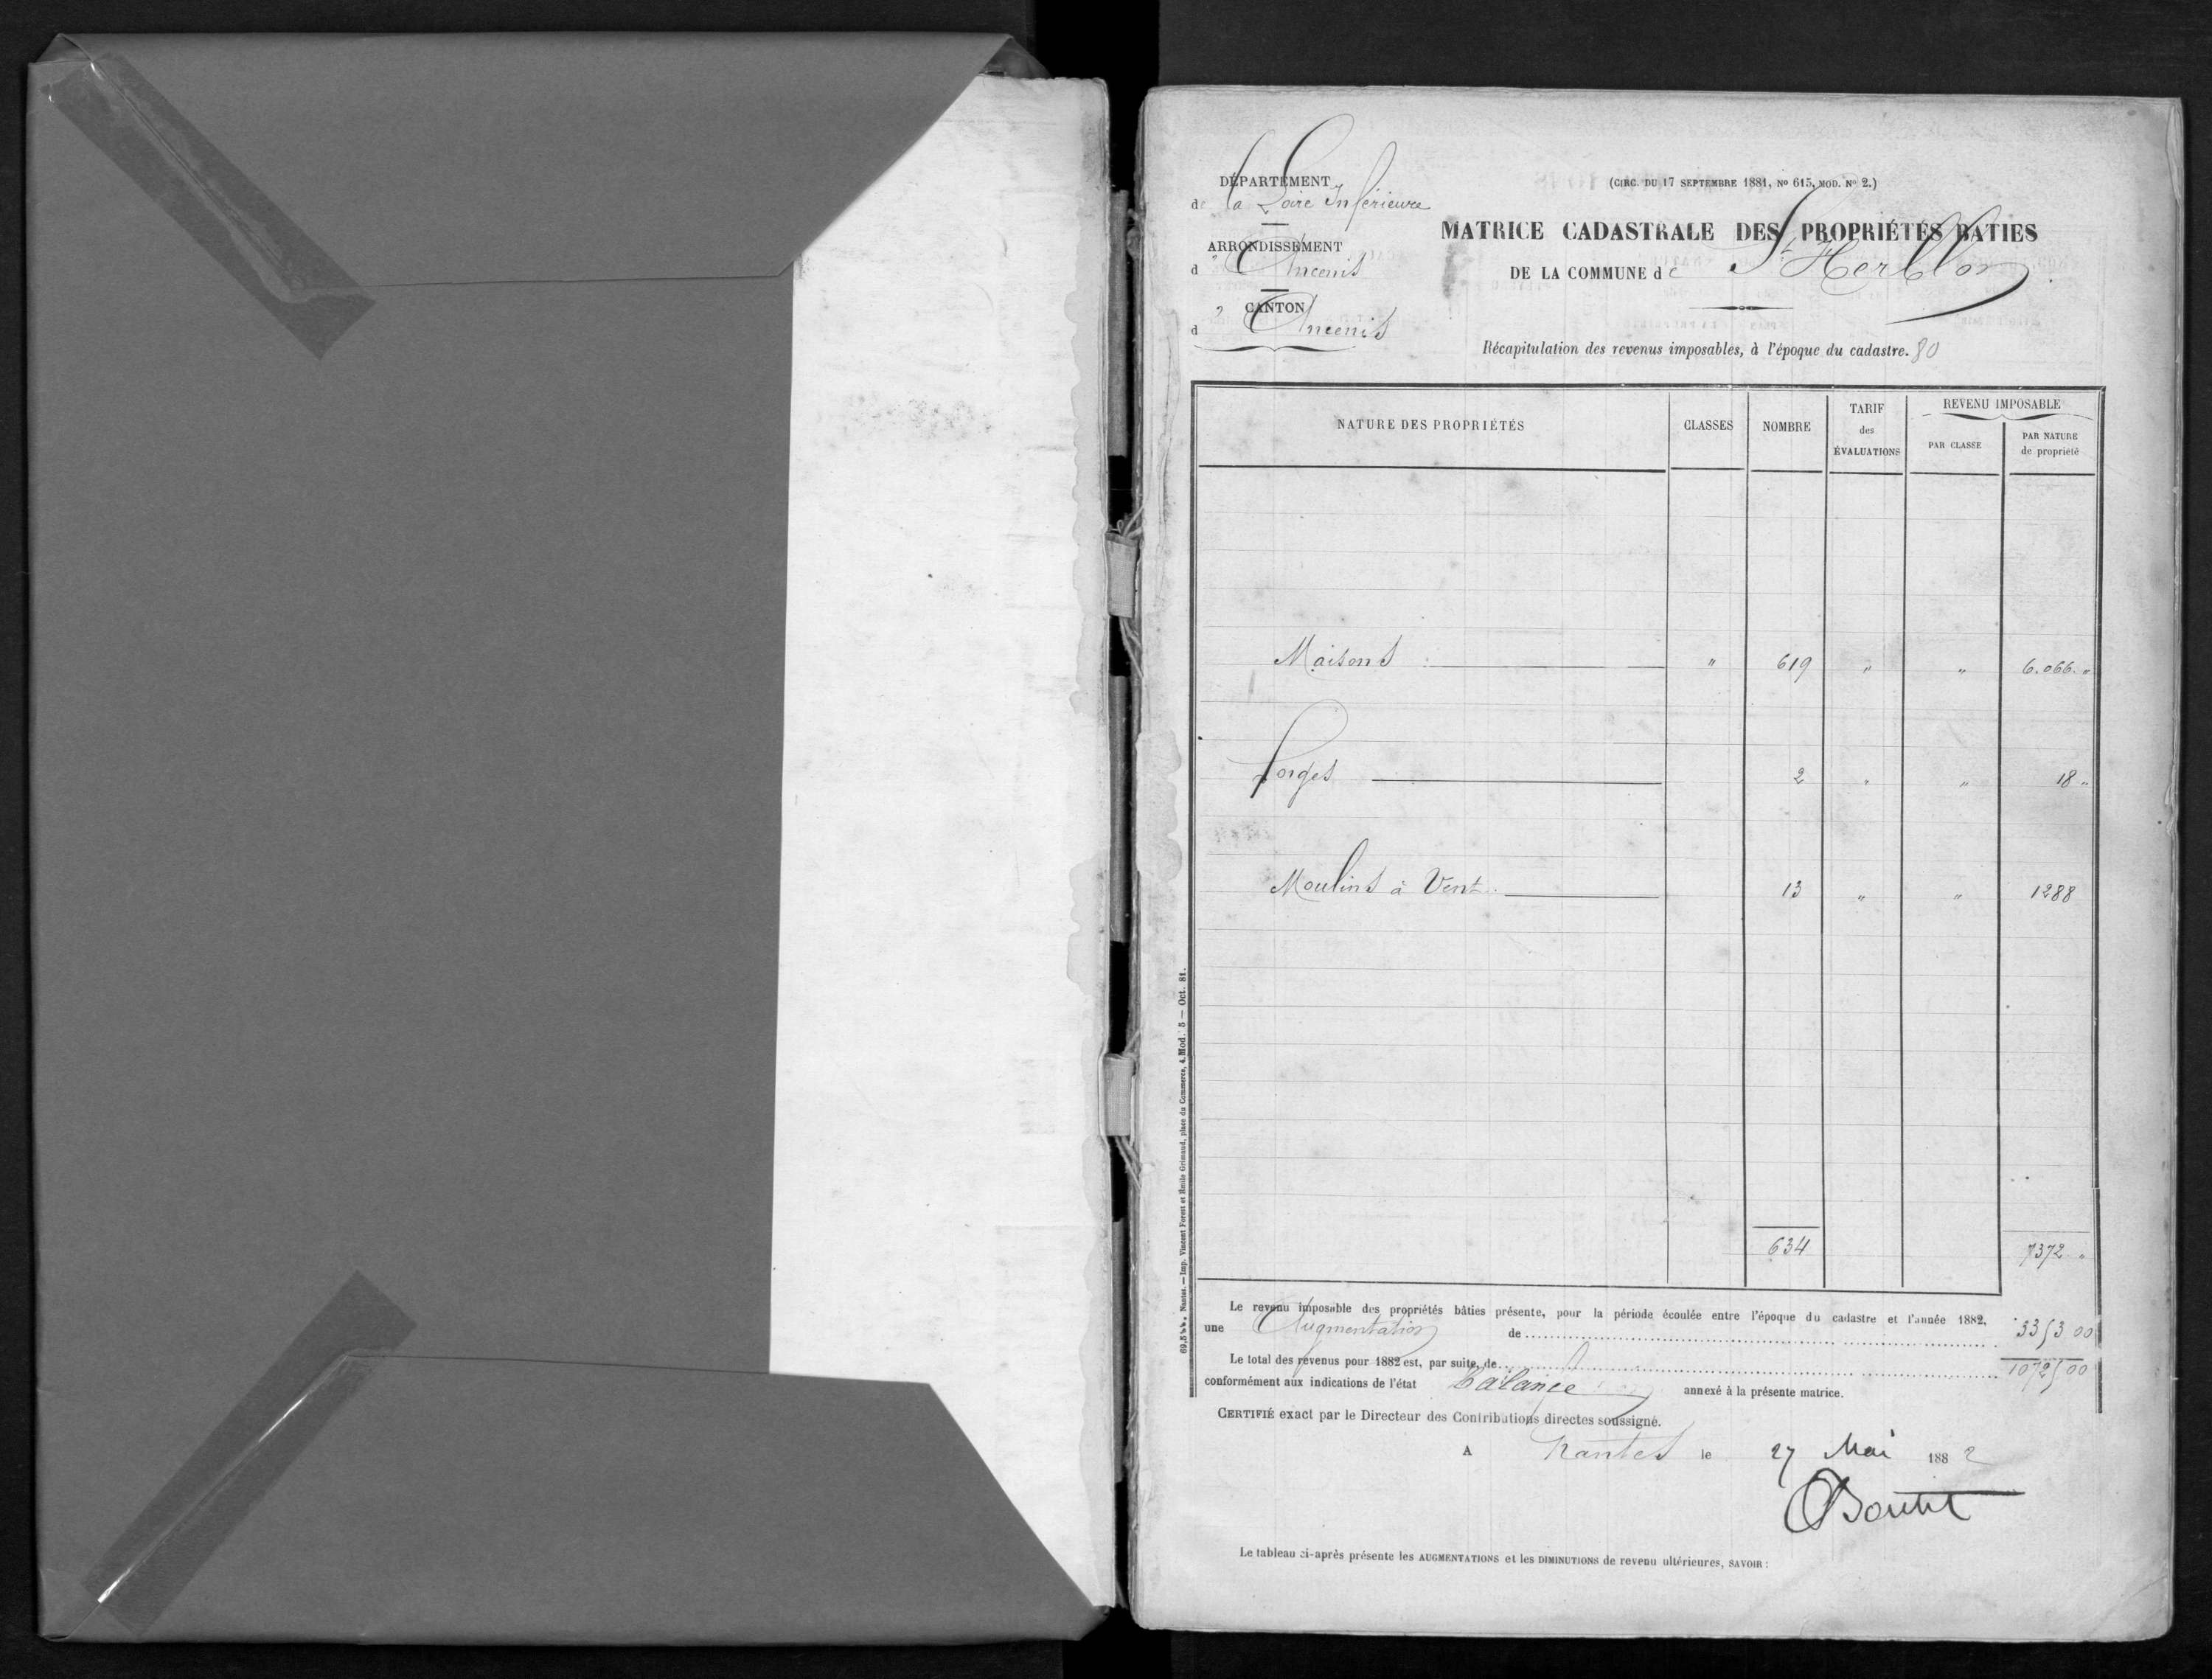 DÉPARTEMENT
de la Loire Inférieure
ARRONDISSEMENT
d' Ancenis
CANTON
d' Ancenis
(CIRC. DU 17 SEPTEMBRE 1881, No 615, MOD. No 2.)
MATRICE CADASTRALE DES PROPRIÉTÉS BATIES
DE LA COMMUNE de St Herblon
Récapitulation des revenus imposables, à l'époque du cadastre. 80
NATURE DES PROPRIÉTÉS
CLASSES
NOMBRE
TARIF
des
ÉVALUATIONS
REVENU IMPOSABLE
PAR CLASSE
PAR NATURE
de propriété
Maisons " 619 " " 6.066. "
Forges 2 " " 18 "
Moulins à Vent 13 " " 1288
634 7372 "
Le revenu imposable des propriétés bâties présente, pour la période écoulée entre l'époque du cadastre et l'année 1882,
une Augmentation de 3353 00
Le total des revenus pour 1882 est, par suite, de 10725 00
conformément aux indications de l'état Balance annexé à la présente matrice.
CERTIFIÉ exact par le Directeur des Contributions directes soussigné.
A Nantes le 27 Mai 1882
Le tableau ci-après présente les AUGMENTATIONS et les DIMINUTIONS de revenu ultérieures, SAVOIR :
Nantes. — Imp. Vincent Forest et Émile Grimaud, place du Commerce, 4. Mod. 5 — Oct. 81.